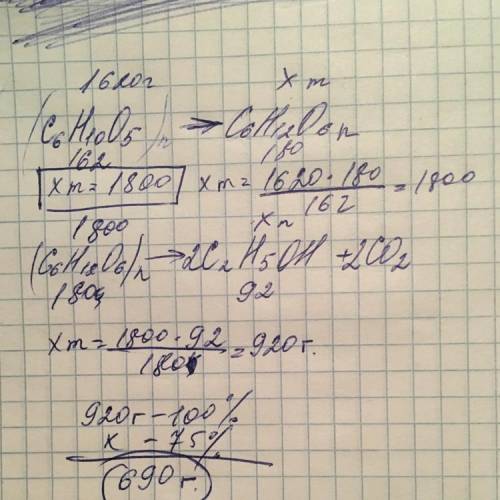 1620г x m
(C6H10O5)n → C6H12O6 n
162 180
xm = 1800 xm = 1620 · 180 / 162 = 1800
1800 xn
(C6H12O6)n → 2C2H5OH + 2CO2
180 92
xm = 1800 · 92 / 180 = 920г.
920г – 100%
x – 75%
690г.